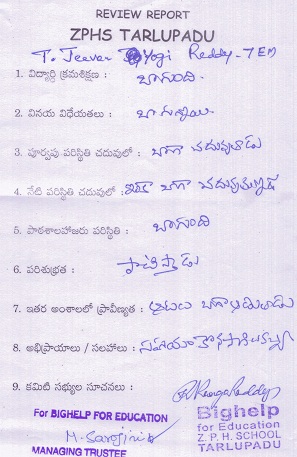 REVIEW REPORT
ZPHS TARLUPADU
T. Jeevan Yogi Reddy - 7 EM
1. విద్యార్థి క్రమశిక్షణ : బాగుంది.
2. వినయ విధేయతలు : బాగున్నాయి.
3. పూర్వపు పరిస్థితి చదువులో : బాగా చదువుతాడు
4. నేటి పరిస్థితి చదువులో : ఇంకా బాగా చదువుతున్నాడు
5. పాఠశాలహాజరు పరిస్థితి : బాగుంది
6. పరిశుభ్రత : పాటిస్తాడు
7. ఇతర అంశాలలో ప్రావీణ్యత : ఆటలు బాగా ఆడుతాడు
8. అభిప్రాయాలు / సలహాలు : సహాయం కొనసాగించవచ్చు
9. కమిటి సభ్యుల సూచనలు :
For BIGHELP FOR EDUCATION
M. Sarojini
MANAGING TRUSTEE
Bighelp
for Education
Z. P. H. SCHOOL
TARLUPADU